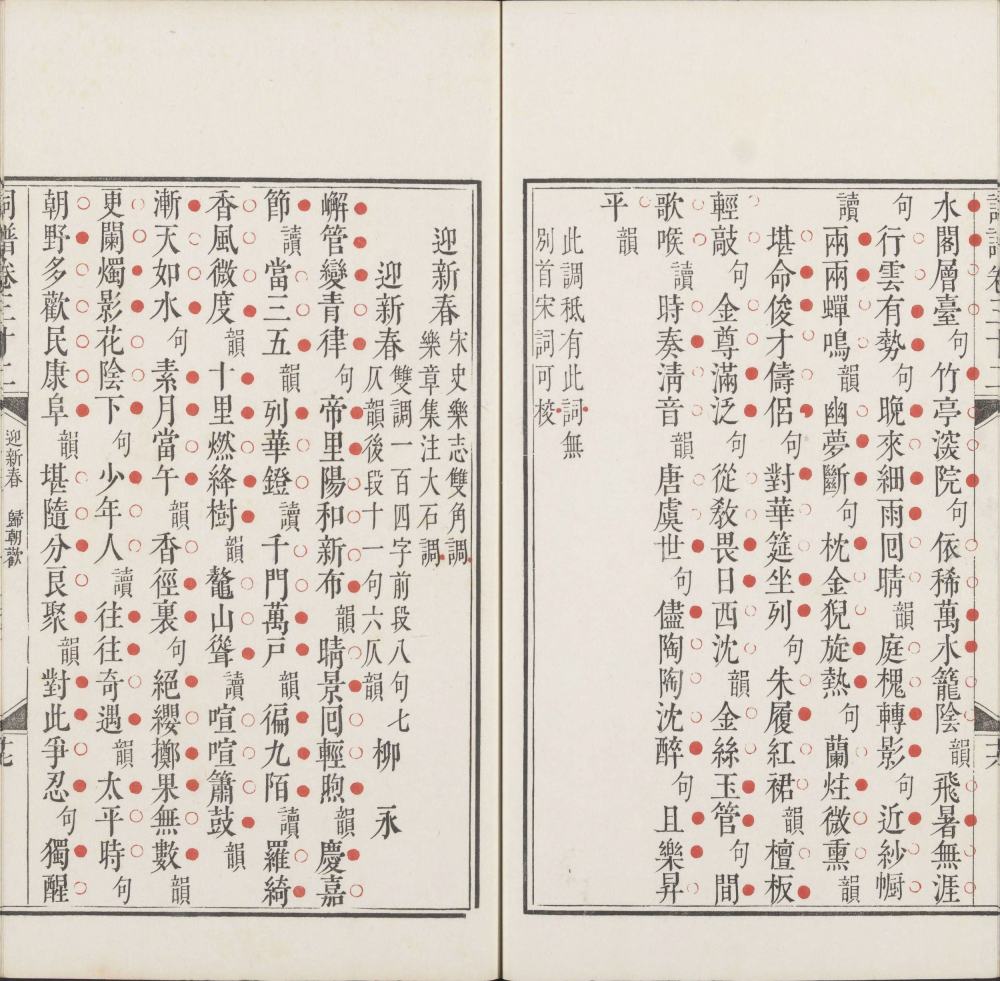 水閣層臺句竹亭深院句依稀萬水籠陰韻飛暑無涯
句行雲有勢句晚來細雨囘晴韻庭槐轉影句近紗㡡
讀兩兩蟬鳴韻幽夢斷句枕金猊旋熱句蘭炷微熏韻
堪命俊才儔侶句對華筵坐列句朱履紅裙韻檀板
輕敲句金尊滿泛句從敎畏日西沈韻金絲玉管句間
歌喉讀時奏淸音韻唐虞世句儘陶陶沈醉句且樂昇
平韻
此調秪有此詞無
別首宋詞可校
迎新春宋史樂志雙角調
樂章集注大石調
迎新春雙調一百四字前段八句七
仄韻後段十一句六仄韻柳永
嶰管變靑律句帝里陽和新布韻晴景囘輕煦韻慶嘉
節讀當三五韻列華鐙讀千門萬戶韻徧九陌讀羅綺
香風微度韻十里燃絳樹韻鼇山聳讀喧喧簫鼓韻
漸天如水句素月當午韻香徑裏句絕纓擲果無數韻
更闌燭影花陰下句少年人讀往往奇遇韻太平時句
朝野多歡民康阜韻堪隨分良聚韻對此爭忍句獨醒
迎新春 歸朝歡